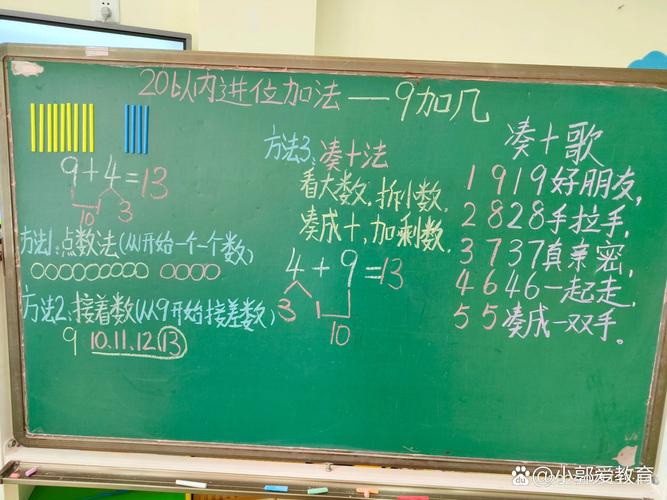 20以内进位加法—9加几
9+4=13
1
10 3
方法1:点数法(从1开始一个一个数)
方法2:接着数(从9开始接着数)
9 10.11.12.13
方法3:凑十法
看大数,拆小数,
凑成十,加剩数.
4+9=13
3 1
10
凑十歌
1 9 1 9 好朋友,
2 8 2 8 手拉手,
3 7 3 7 真亲密,
4 6 4 6 一起走,
5 5 凑成一双手。
小郭爱教育